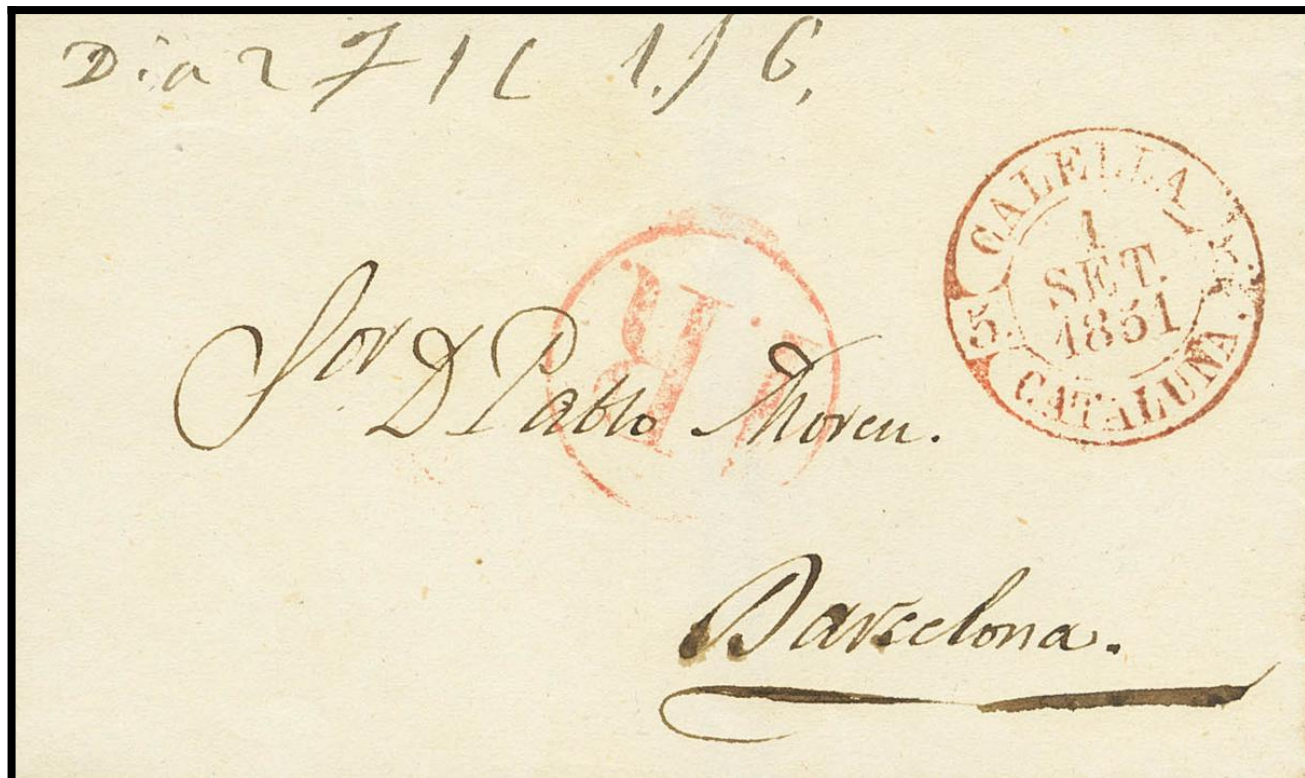 Dia 2
CALELLA
1
SET.
1851
5
CATALUÑA.
Sor D Pablo Moreu.
R
Barcelona.